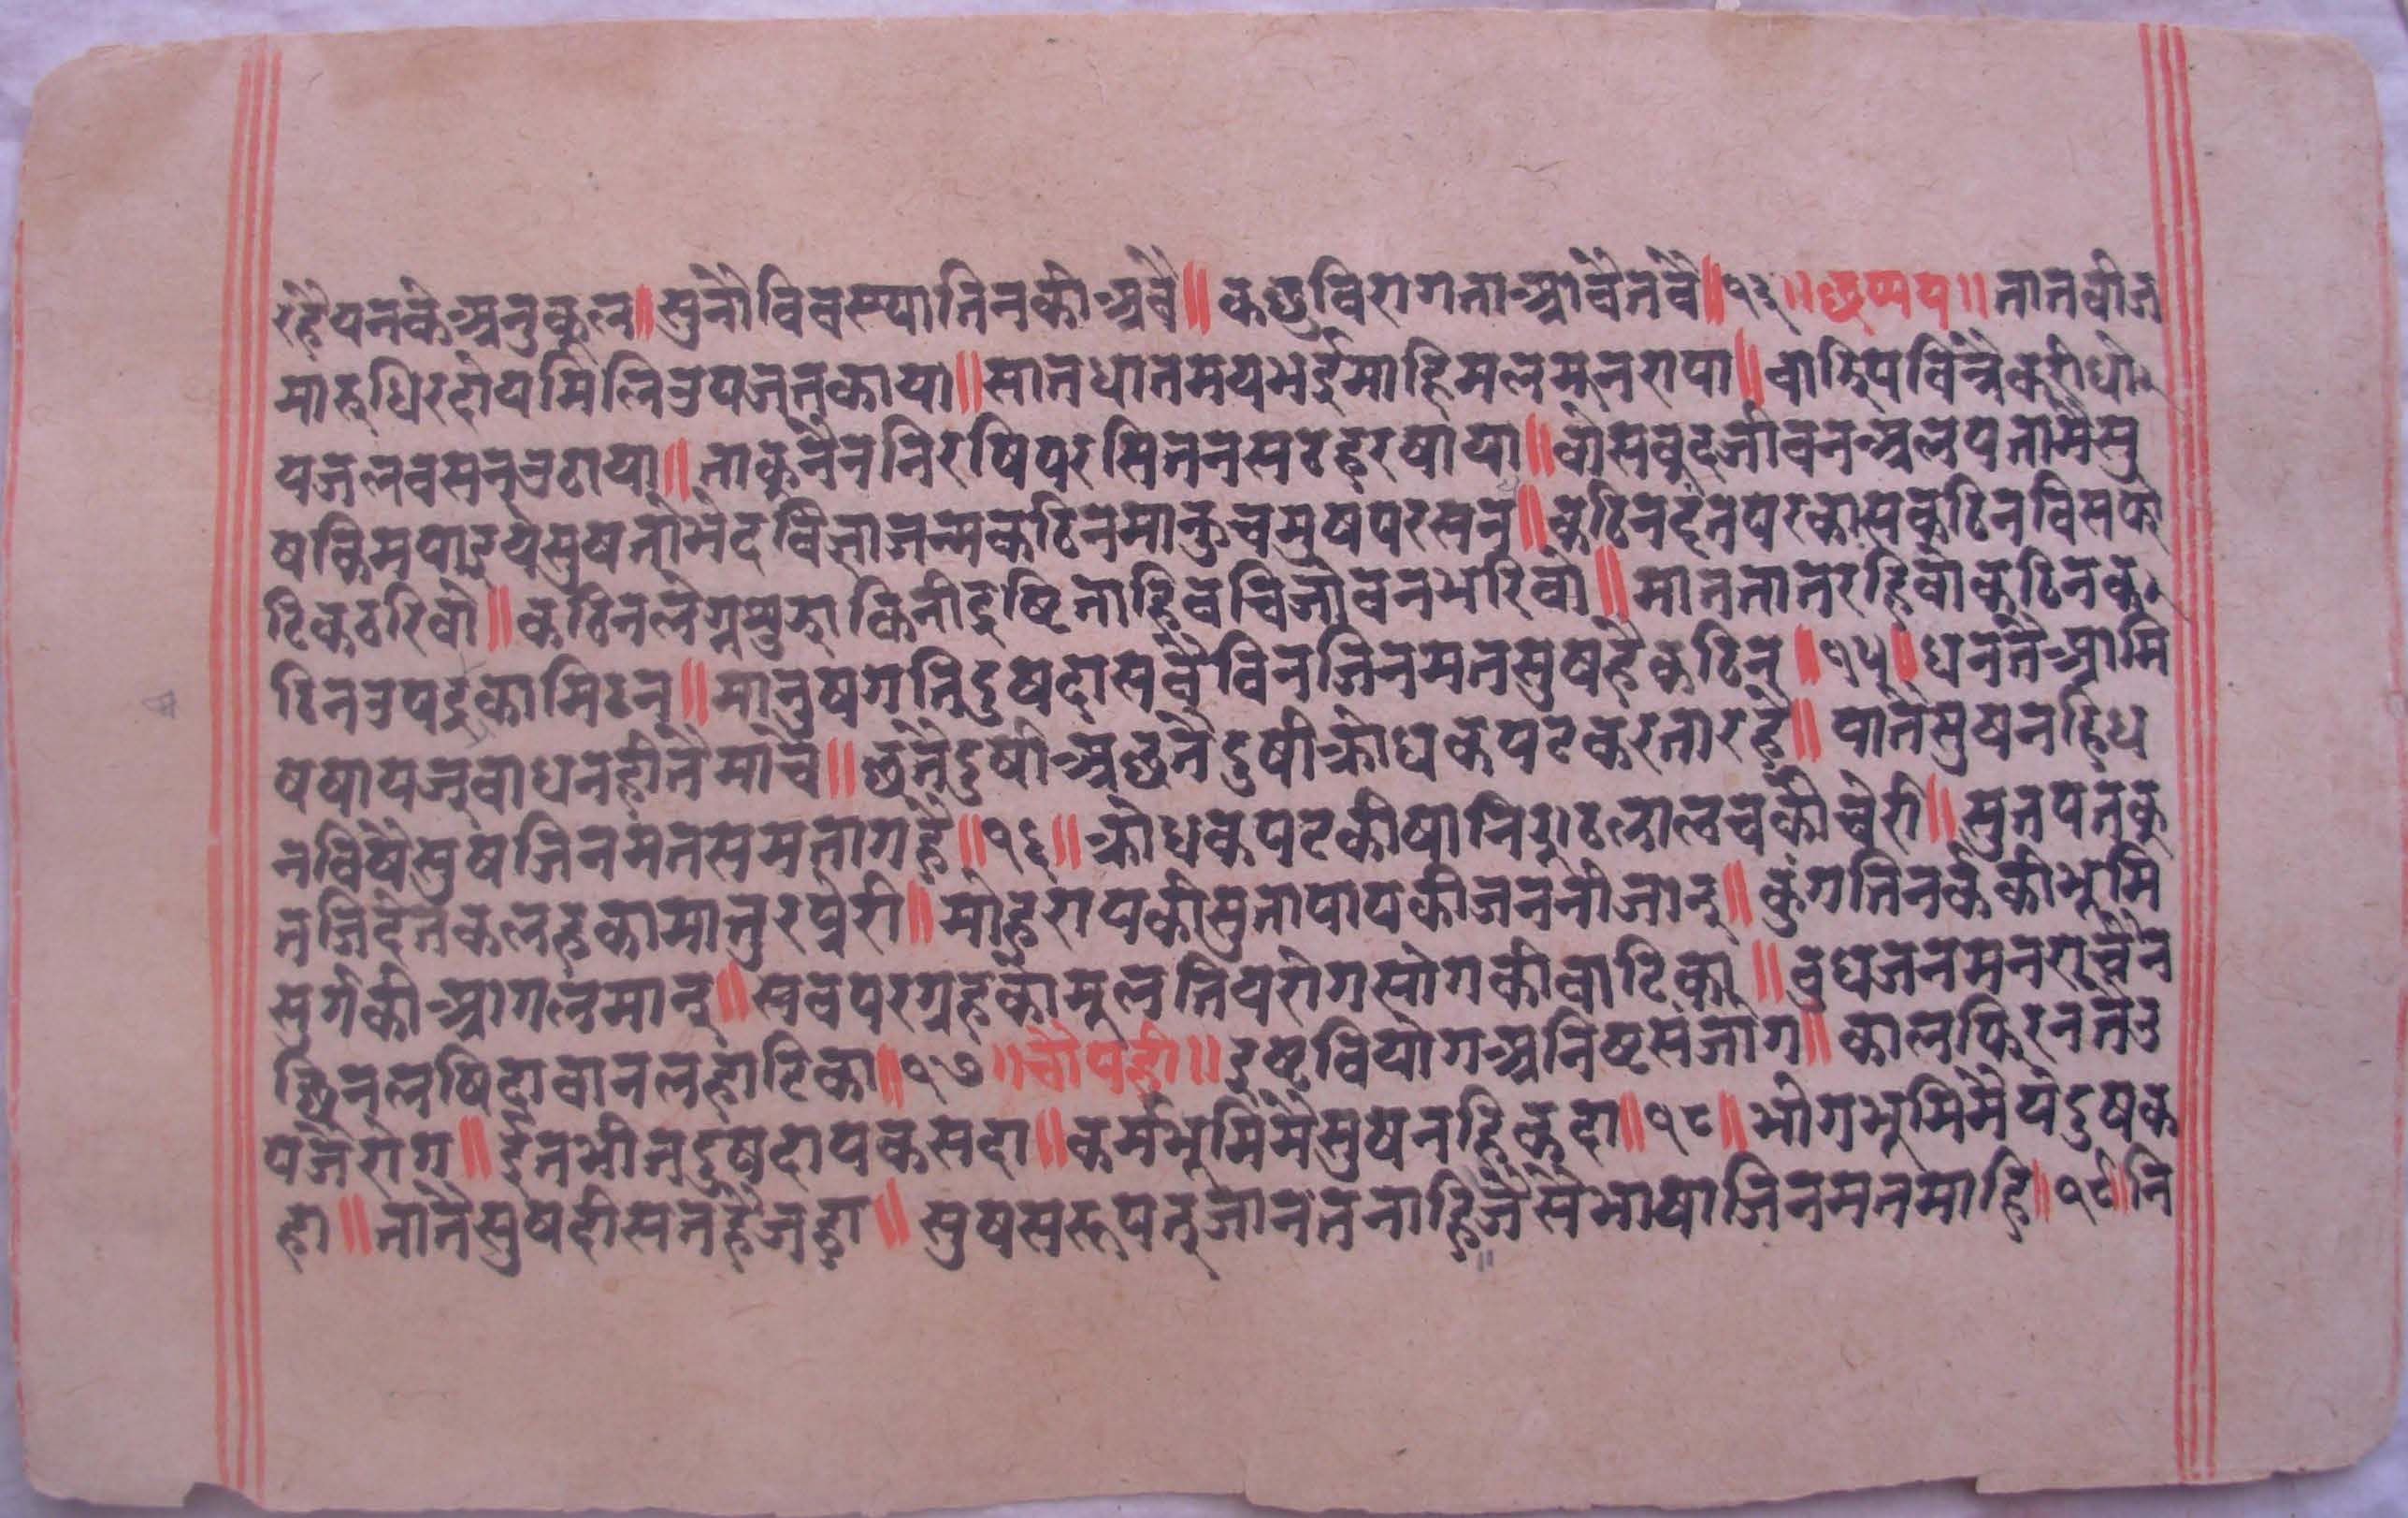 रहैयनकेअनुकूल॥सुनौविवस्थातिनकीअवै॥कछुविरागताआवैतवै॥१३॥छप्पय॥तातवीज
मारुधिरदोयमिलिउपजतकाया॥सातधातमयभईमाहिमलमूतरापा॥चाहिपवित्रकरीधो
यजलवसनउठाया॥ताकूनैननिरषिपरसितनसठहरषाया॥वोसवुदजीवनअलपतामैसु
षकिमपाइयेसुषतोभेदविज्ञाजन्मकठिनमाकुचमुषपरसन॥कठिनदंतपरकासकठिनविसफो
टिकठरिवो॥कठिनलेगसुझाकिनीदृष्टिनाहिवचिजोवनभरिवो॥माततातरहिवोकठिनक
ठिनउपद्रकामिटन॥मानुषगतिदुषदासवैविनजिनमतसुषहैकठिन॥१५॥धनतैआमि
षषायजुवाधनहीतैमाचै॥छतैदुषीअछतैदुषीक्रोधकपटकरतारहै॥पातैसुषनहिध
नविषैसुषजिनमतसमतागहै॥१६॥क्रोधकपटकीषानिराठलालचकीचेरी॥सुतपतकु
तजिदेतकलहकामातुरप्रेरी॥मोहरायकीसुतापापकीजननीजानू॥कुगतिनर्ककीभूमि
सुर्गकीआगलमानू॥सवपरग्रहकोमूलतियरोगसोगकीवाटिका॥वुधजनमनराचैन
छिनलषिदावानलहाटिका॥१७॥चौपही॥इष्टवियोगअनिष्टसंजोग॥कालफिरनतउ
पजैरोग॥ईतभीतदुषदायकसदा॥कर्मभूमिमैसुषनहिकदा॥१८॥भोगभूमिमैयेदुषक
हा॥तातैसुषदीसतहैजहा॥सुषसरूपतूजानतनाहिजैसेभाषाजिनमतमाहि॥१९॥नि